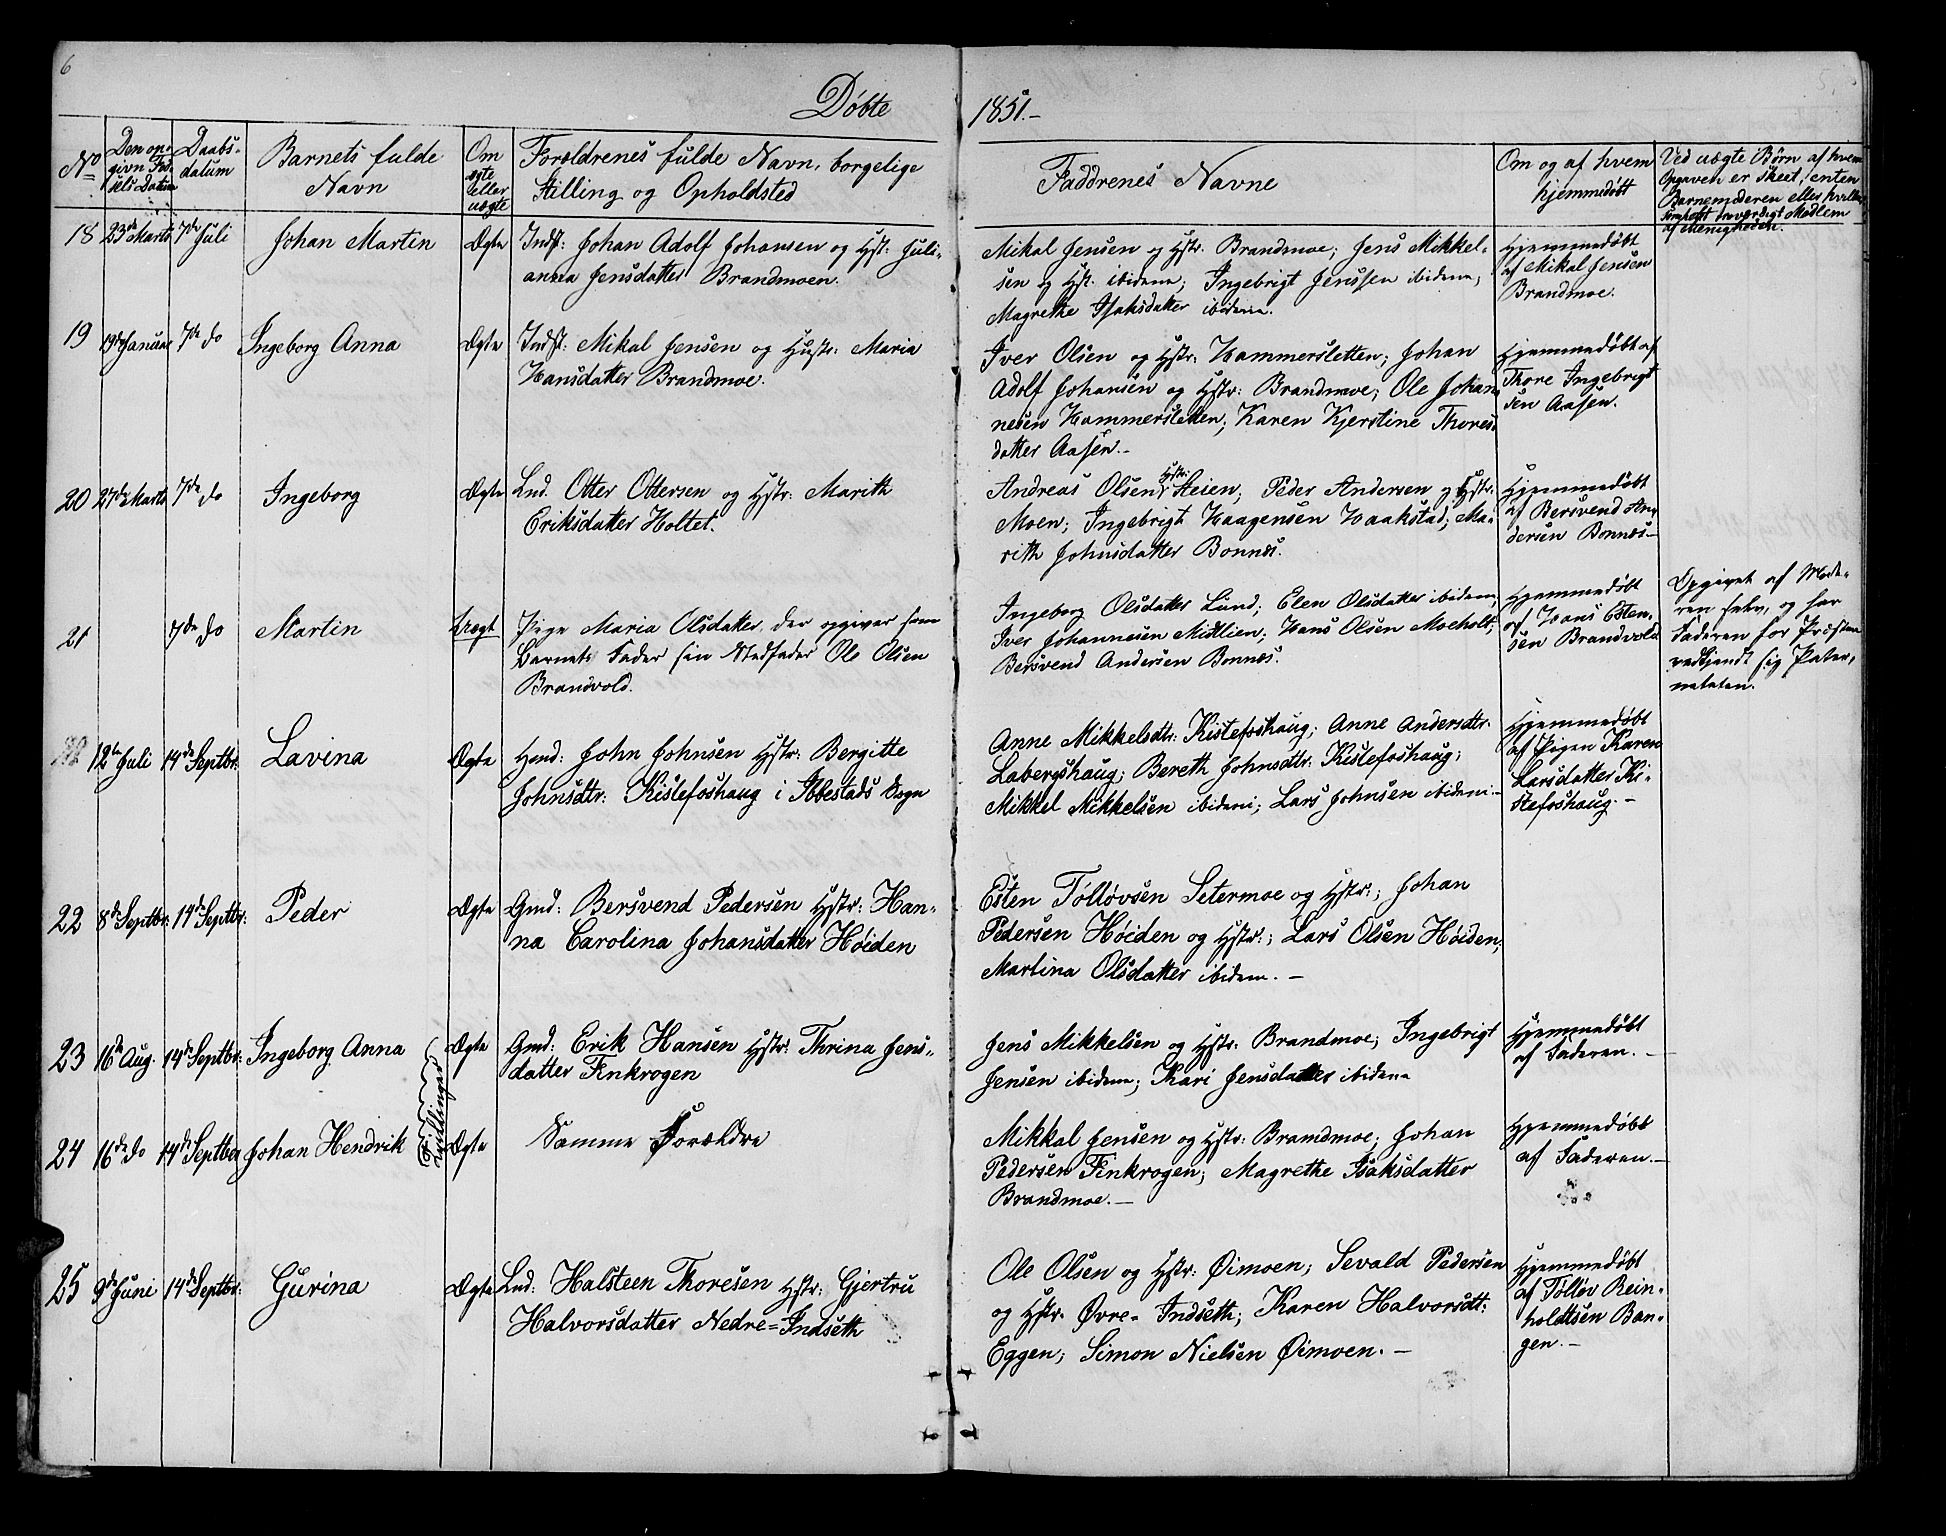 6
Døbte 1851.-
5.
No
Den opgivn Fødsels Datum
Daabsdatum
Barnets fulde Navn
Om ægte eller uægte
Forældrenes fulde Navn, borgelige
Stilling og Opholdsted
Faddrenes Navne
Om og af hvem
hjemmedøbt
Ved uægte Børn af hvem
Opgaven er skeet, enten
Barnemoderen eller hvilken
somhelst troværdigt Medlem
af Menigheden.
18 23de Marts 7de Juli Johan Martin Ægte Indst: Johan Adolf Johansen og Hst: Juli-
anna Jensdatter Brandmoen.
Mikal Jensen og Hstr: Brandmoe; Jens Mikkel-
sen og Hst. ibidem; Ingebrigt Jenssen ibidem;
Magrethe Isaksdatter ibidem.
Hjemmedøbt
af Mikal Jensen
Brandmoe.
19 19de Januar 7de do Ingeborg Anna Ægte Indst: Mikal Jensen og Hustr: Maria
Hansdatter Brandmoe.
Iver Olsen og Hstr: Hammersletten; Johan
Adolf Johansen og Hstr: Brandmoe; Ole Johan-
nesen Hammersletten; Karen Kjerstine Thores-
datter Aasen.-
Hjemmedøbt af
Thore Ingebrigt
sen Aasen.
20 27de Marts 7de do Ingeborg Ægte Lnd. Otter Ottersen og Hstr: Marith
Eriksdatter Holtet.
Andreas Olsen Hstr: Steien; Peder Andersen og Hstr:
Moen; Ingebrigt Haagensen Haakstad; Ma-
rith Johnsdatter Bonnæs.
Hjemmedøbt
af Bersvend An-
dersen Bonnæs-
21 7de do Martin Uægt Pige Maria Olsdatter, der opgiver som
Barnets Fader sin Stedfader Ole Olsen
Brandvold.
Ingeborg Olsdatter Lund; Elen Olsdatter ibidem;
Iver Johannesen Midtlien; Hans Olsen Moeholt;
Bersvend Andersen Bonnæs.
Hjemmedøbt
af Hans Esten-
sen Brandvold
Opgivet af Mode-
ren selv, og har
Faderen for Præsten
vedkjendt sig Pater-
niteten.
12te Juli 14de Septbr: Lavina Ægte Hmd: John Johnsen Hstr: Bergitte
Johnsdtr: Kistefoshaug i Ibbestads Sogn
Anne Mikkelsdtr: Kistefoshaug; Anne Andersdtr:
Labergshaug; Bereth Johnsdtr: Kistefoshaug;
Mikkel Mikkelsen ibidem; Lars Johnsen ibidem.-
Hjemmedøbt
af Pigen Karen
Larsdatter Ki-
stefoshaug.-
22 8de Septbr: 14de Septbr: Peder Ægte Gmd: Bersvend Pedersen Hstr: Han-
na Carolina Johansdatter Høiden
Esten Tølløvsen Setermoe og Hstr:; Johan
Pedersen Høiden og Hstr:; Lars Olsen Høiden;
Martina Olsdatter ibidem.-
23 16de Aug. 14de Septbr: Ingeborg Anna Ægte Gmd: Erik Hansen Hstr: Thrina Jens-
datter Finkrogen
Jens Mikkelsen og Hstr: Brandmoe; Ingebrigt
Jensen ibidem; Kari Jensdatter ibidem
Hjemmedøbt
af Faderen.-
Tvillinger
24 16de do 14de Septbr Johan Hendrik Ægte Samme Forældre
Mikkal Jensen og Hstr: Brandmoe; Johan
Pedersen Finkrogen; Magrethe Isaksdatter
Brandmoe.-
Hjemmedøbt
af Faderen.-
25 9de Juni 14de Septbr: Gurina Ægte Lnd: Halsteen Thoresen Hstr: Gjertru
Halvorsdatter Nedre=Indseth
Ole Olsen og Hstr: Øimoen; Sevald Pedersen
og Hstr. Øvre=Indseth; Karen Halvorsdt:
Eggen; Simon Nielsen Øimoen.-
Hjemmedøbt
af Tølløv Rein-
holdtsen Ban-
gen.-